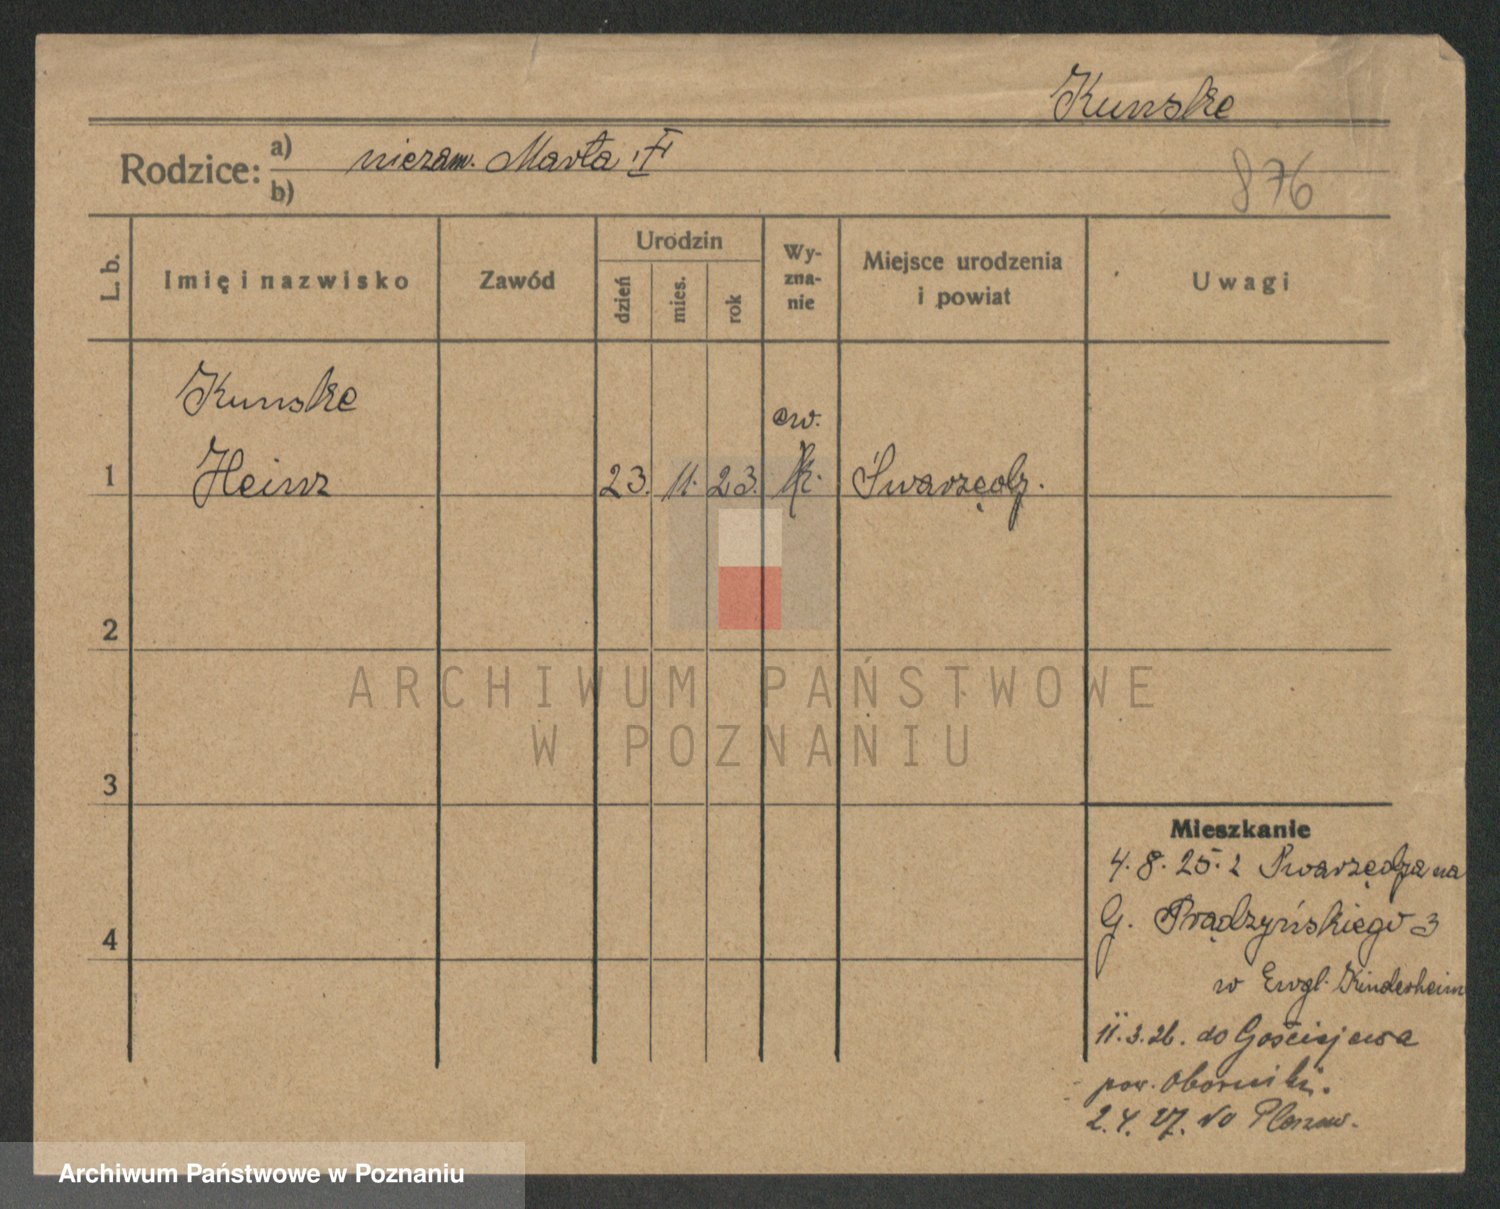 Kunske
Rodzice: a) niezam. Marta
b)
876
L. b.
Imię i nazwisko
Zawód
Urodzin
dzień
mies.
rok
Wy-
zna-
nie
Miejsce urodzenia
i powiat
Uwagi
Kunske
ew.
1 Heinz 23. 11. 23. k. Swarzędz.
2
3
4
ARCHIWUM PAŃSTWOWE
W POZNANIU
Mieszkanie
4. 8. 25. z Swarzędza na
G. Prądzyńskiego 3
w Ewgl. Kinderheim
11. 3. 26. do Gościejewa
pow. Oborniki.
2. 4. 27. do
Archiwum Państwowe w Poznaniu